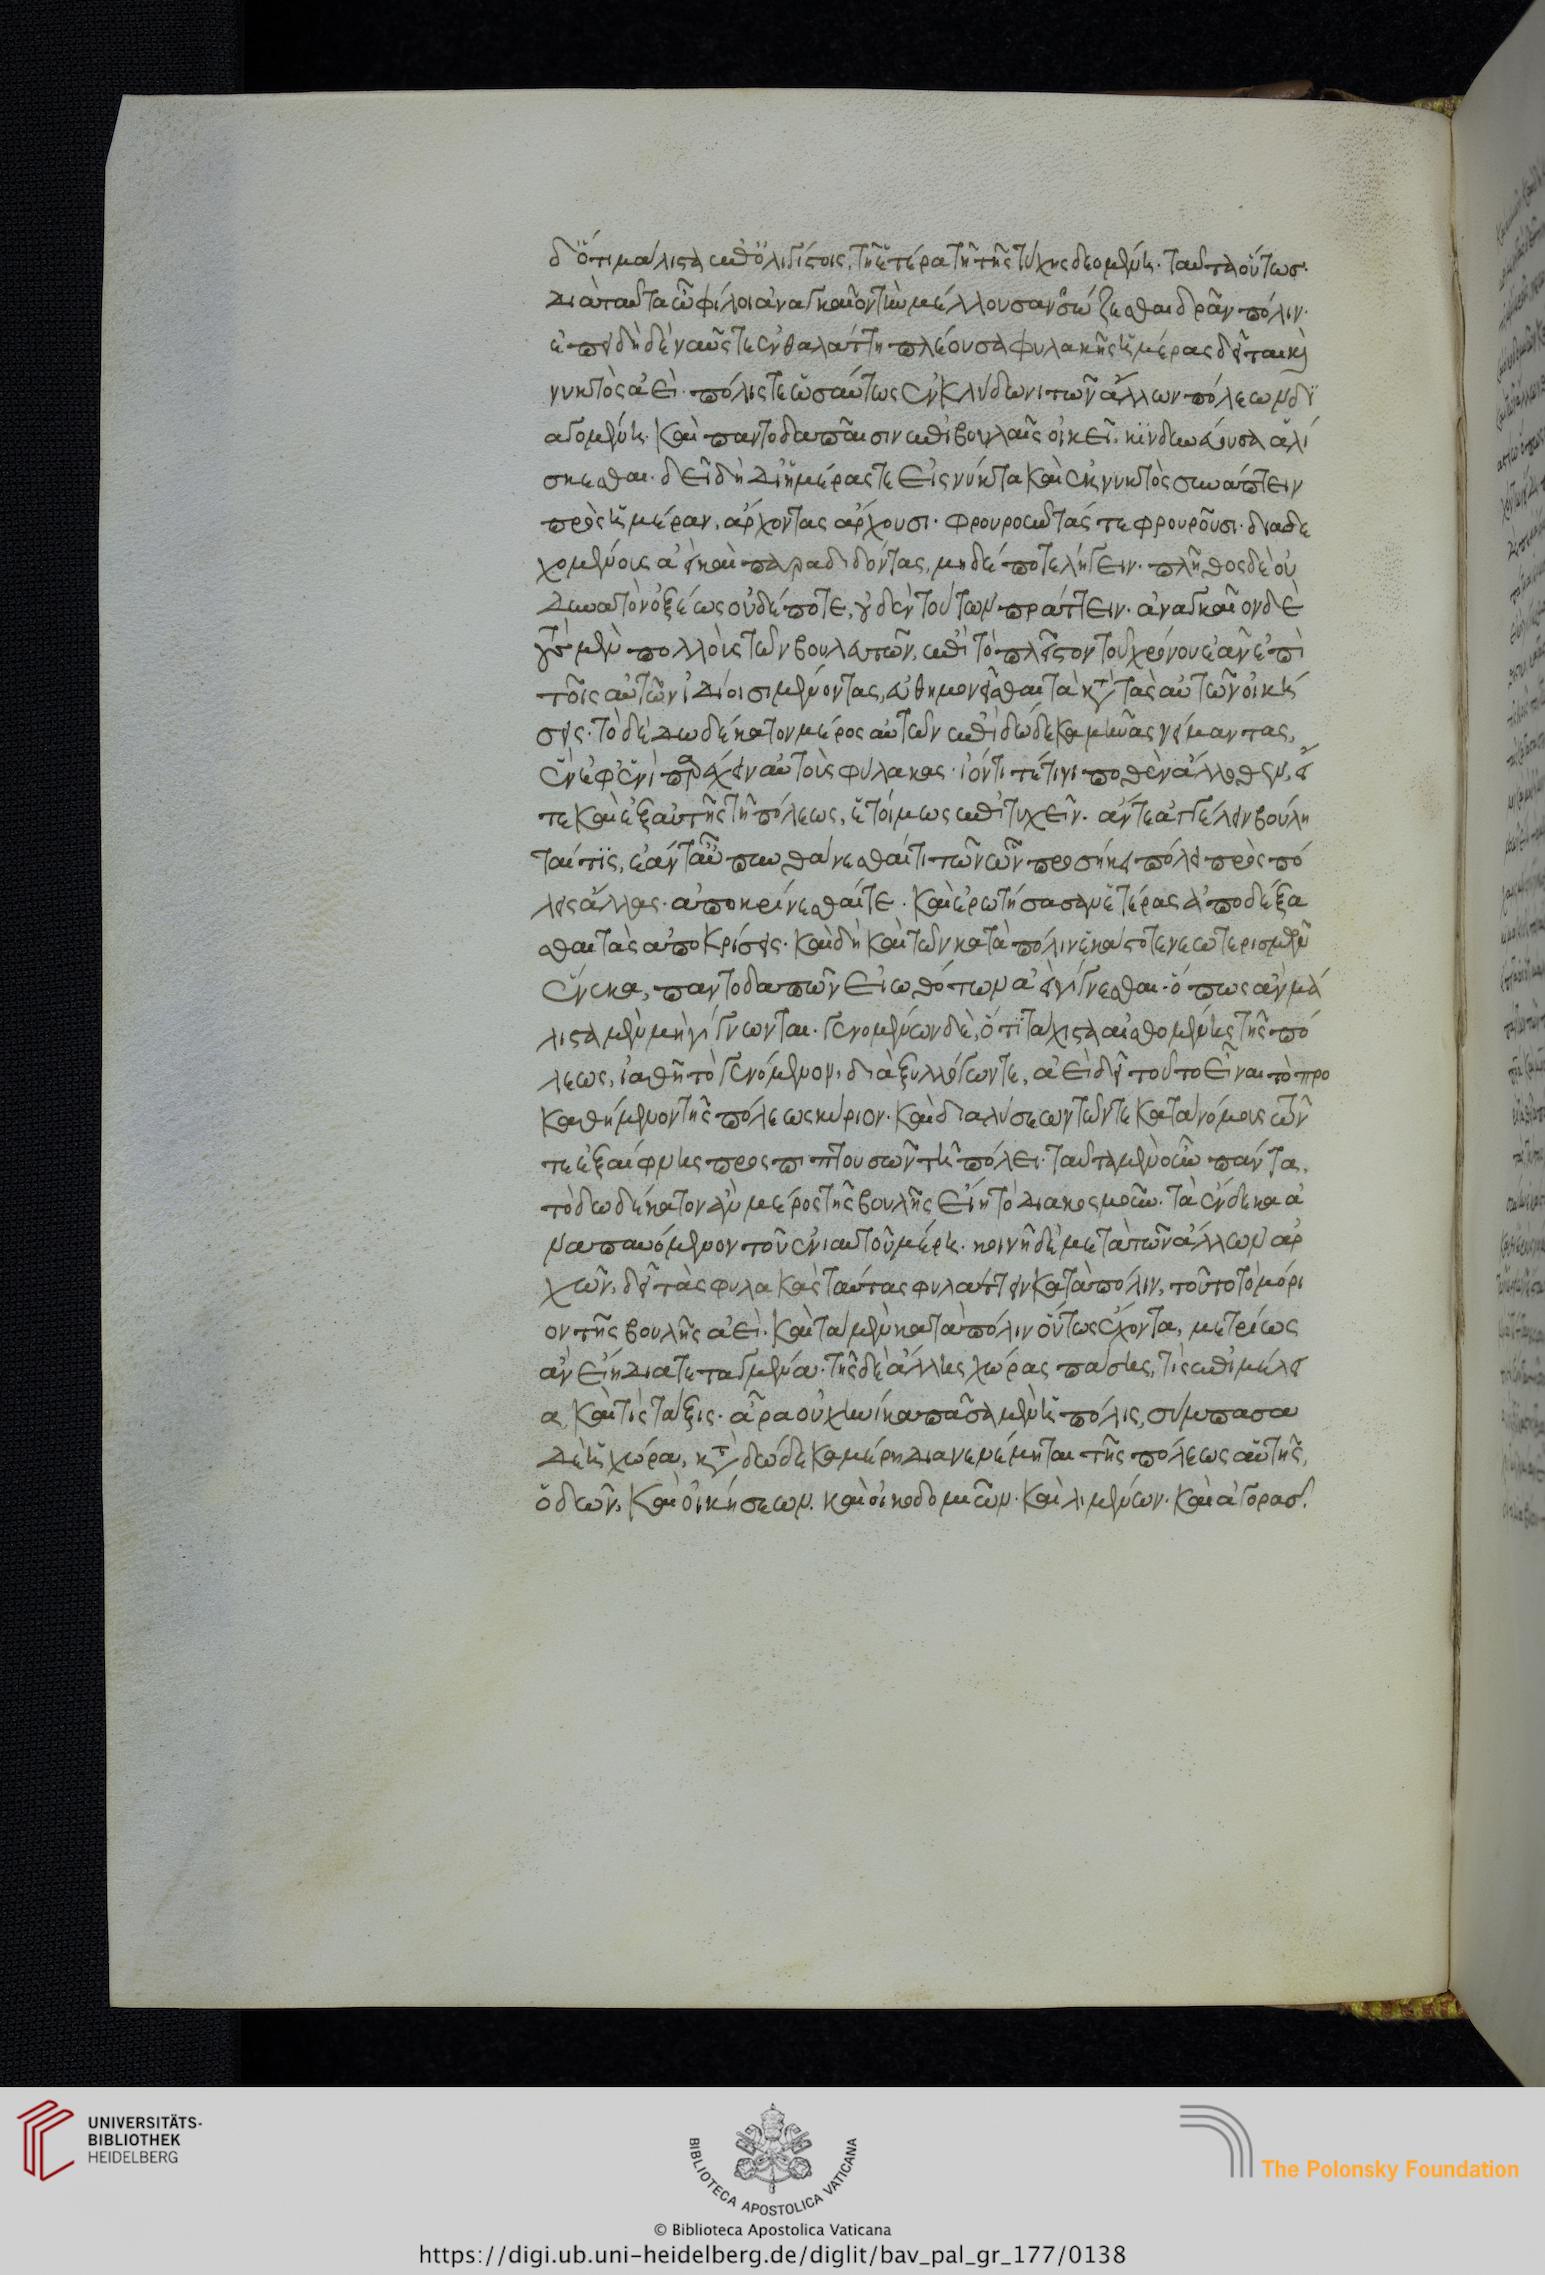 δ' ὅτι μάλιστα ἐπ' ὀλιγίστοις, τῇ ἑτέρα τῇ τῆς τύχης δεομένῃ. ταῦτα οὕτωσ
διὰ ταῦτα ὦ φίλοι ἀναγκαῖον τὴν μέλλουσαν σώζεσθαι δρᾶν πόλιν.
ἐπειδὴ δὲ ναῦς τε ἐν θαλάττη πλέουσα φυλακῆς ἡμέρας δεῖται καὶ
νυκτὸς ἀεὶ. πόλις τε ὡσαύτως ἐν κλύδωνι τῶν ἄλλων πόλεων δι
αγομένη. καὶ παντοδαπαῖσιν ἐπιβουλαῖς οἰκεῖ. κινδυνεύουσα ἁλί
σκεσθαι. δεῖ δὴ δι' ἡμέρας τε εἰς νύκτα καὶ ἐκ νυκτὸς συνάπτειν
πρὸς ἡμέραν, ἄρχοντας ἄρχουσι. φρουροῦντάς τε φρουροῦσι. διαδε
χομένοις ἀεὶ καὶ παραδιδόντας, μηδέποτε λήγειν. πλῆθος δὲ οὐ
δυνατὸν ὀξέως οὐδέποτε, οὐδὲν τούτων πράττειν. ἀναγκαῖον δὲ
τοὺς μὲν πολλοὺς τῶν βουλευτῶν, ἐπὶ τὸ πλεῖστον τοῦ χρόνου ἐᾶν ἐπὶ
τοῖς αὑτῶν ἰδίοισι μένοντας, εὐθημονεῖσθαι τὰ κατὰ τὰς αὑτῶν οἰκή
σεις. τὸ δὲ δωδέκατον μέρος αὐτῶν ἐπὶ δώδεκα μῆνας νείμαντας,
ἓν ἐφ' ἑνὶ παρέχειν αὐτοὺς φύλακας. ἰόντι τέ τινι ποθὲν ἄλλοθεν, εἴ
τε καὶ ἐξ αὐτῆς τῆ πόλεως, ἑτοίμως ἐπιτυχεῖν. ἄν τε ἀγγέλειν βούλη
ταί τις, ἐάν τ' αὖ πυνθάνεσθαί τι τῶν ὧν προσήκει πόλει πρὸς πό
λεις ἄλλας. ἀποκρίνεσθαί τε. καὶ ἐρωτήσασαν ἑτέρας ἀποδέξα
σθαι τὰς ἀποκρίσεις. καὶ δὴ καὶ τῶν κατὰ πόλιν ἑκάστοτε νεωτερισμῶν
ἕνεκα, παντοδαπῶν εἰωθότων ἀεὶ γίγνεσθαι. ὅπως ἂν μά
λιστα μὲν μὴ γίγνωνται. γενομένων δὲ, ὅτι τάχιστα αἰσθομένης τῆς πό
λεως, ἰαθῆ τὸ γενόμενον. διὰ ξυλλόγων τε, ἀεὶ δεῖ τοῦτο εἶναι τὸ προ
καθήμενον τῆς πόλεως κύριον. καὶ διαλύσεων τῶν τε κατὰ νόμους τῶν
τε ἐξαίφνης προσπιπτουσῶν τῇ πόλει. ταῦτα μὲν οὖν πάντα,
τὸ δωδέκατον ἂν μέρος τῆς βουλῆς εἴη τὸ διακοσμοῦν. τὰ ἕνδεκα ἀ
ναπαυόμενον τοῦ ἐνιαυτοῦ μέρη. κοινῆ δὲ μετὰ τῶν ἄλλων ἀρ
χῶν, δεῖ τὰς φυλακὰς ταύτας φυλάττειν κατὰ πόλιν, τοῦτο τὸ μόρι
ον τῆς βουλῆς ἀεὶ. καὶ τὰ μὲν κατὰ πόλιν οὕτως ἔχοντα, μετρίως
ἂν εἴη διατεταγμένα. τῆς δὲ ἄλλης χώρας πάσης, τίς ἐπιμέλει
α, καὶ τίς τάξις. ἆρα οὐχ ἡνίκα πᾶσα μὲν ἡ πόλις, σύμπασα
δὲ ἡ χώρα, κατὰ δώδεκα μέρη διανενέμηται τῆς πόλεως αὐτῆς,
ὁδῶν, καὶ οἰκήσεων. καὶ οἰκοδομιῶν. καὶ λιμένων. καὶ ἀγορᾶσ.
UNIVERSITÄTS-
BIBLIOTHEK
HEIDELBERG
BIBLIOTECA APOSTOLICA VATICANA
© Biblioteca Apostolica Vaticana
The Polonsky Foundation
https://digi.ub.uni-heidelberg.de/diglit/bav_pal_gr_177/0138